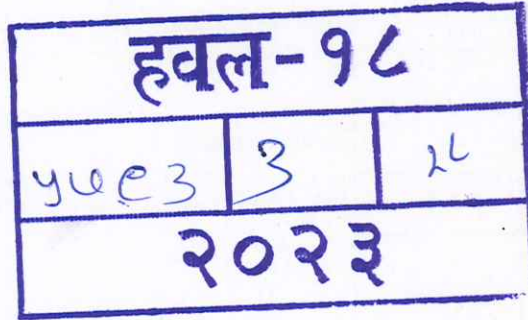 हवल-१८
५७९३ ३ २८
२०२३